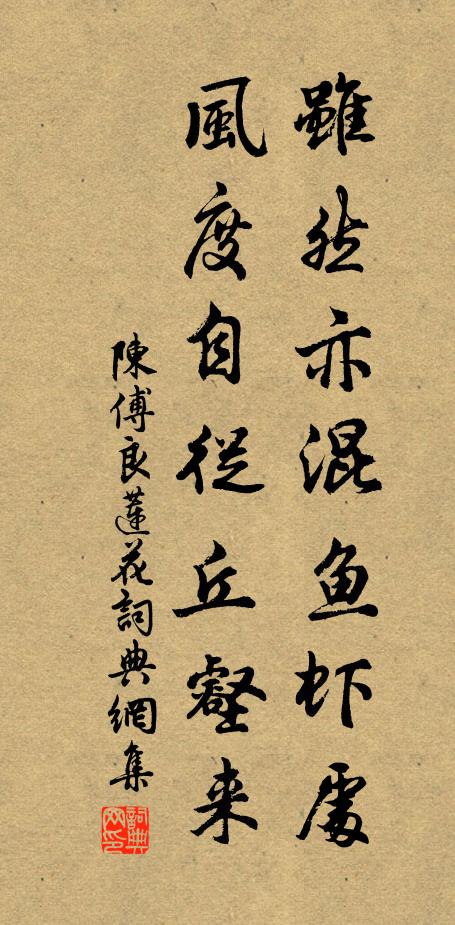 雖然亦混鱼虾處
風度自從丘壑来
陳傅良蓮花詞典網集
詞典网印